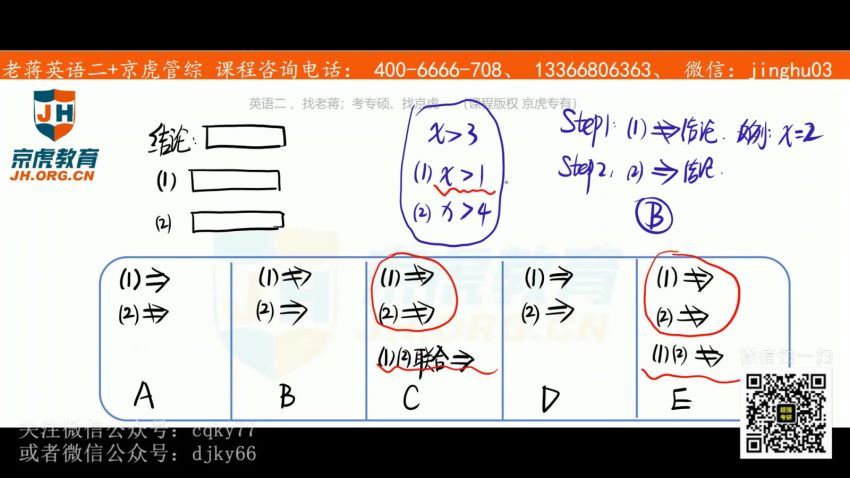 老蒋英语二+京虎管综 课程咨询电话: 400-6666-708、 13366806363、 微信:jinghu03
英语二、找老蒋;考专硕、找京虎 (课程版权 京虎专有)
JH
京虎教育
JH.ORG.CN
结论:
(1)
(2)
x>3
(1) x>1
(2) x>4
Step1: (1) ⇏ 结论. 反例: x=2
Step2: (2) ⇒ 结论.
B
(1)⇒
(2)⇏
A
(1)⇏
(2)⇒
B
(1)⇏
(2)⇏
(1)(2)联合⇒
C
(1)⇒
(2)⇒
D
(1)⇏
(2)⇏
(1)(2)⇏
E
京虎教育
JH.ORG.CN
微信扫一扫
关注微信公众号:cqky77
或者微信公众号:djky66